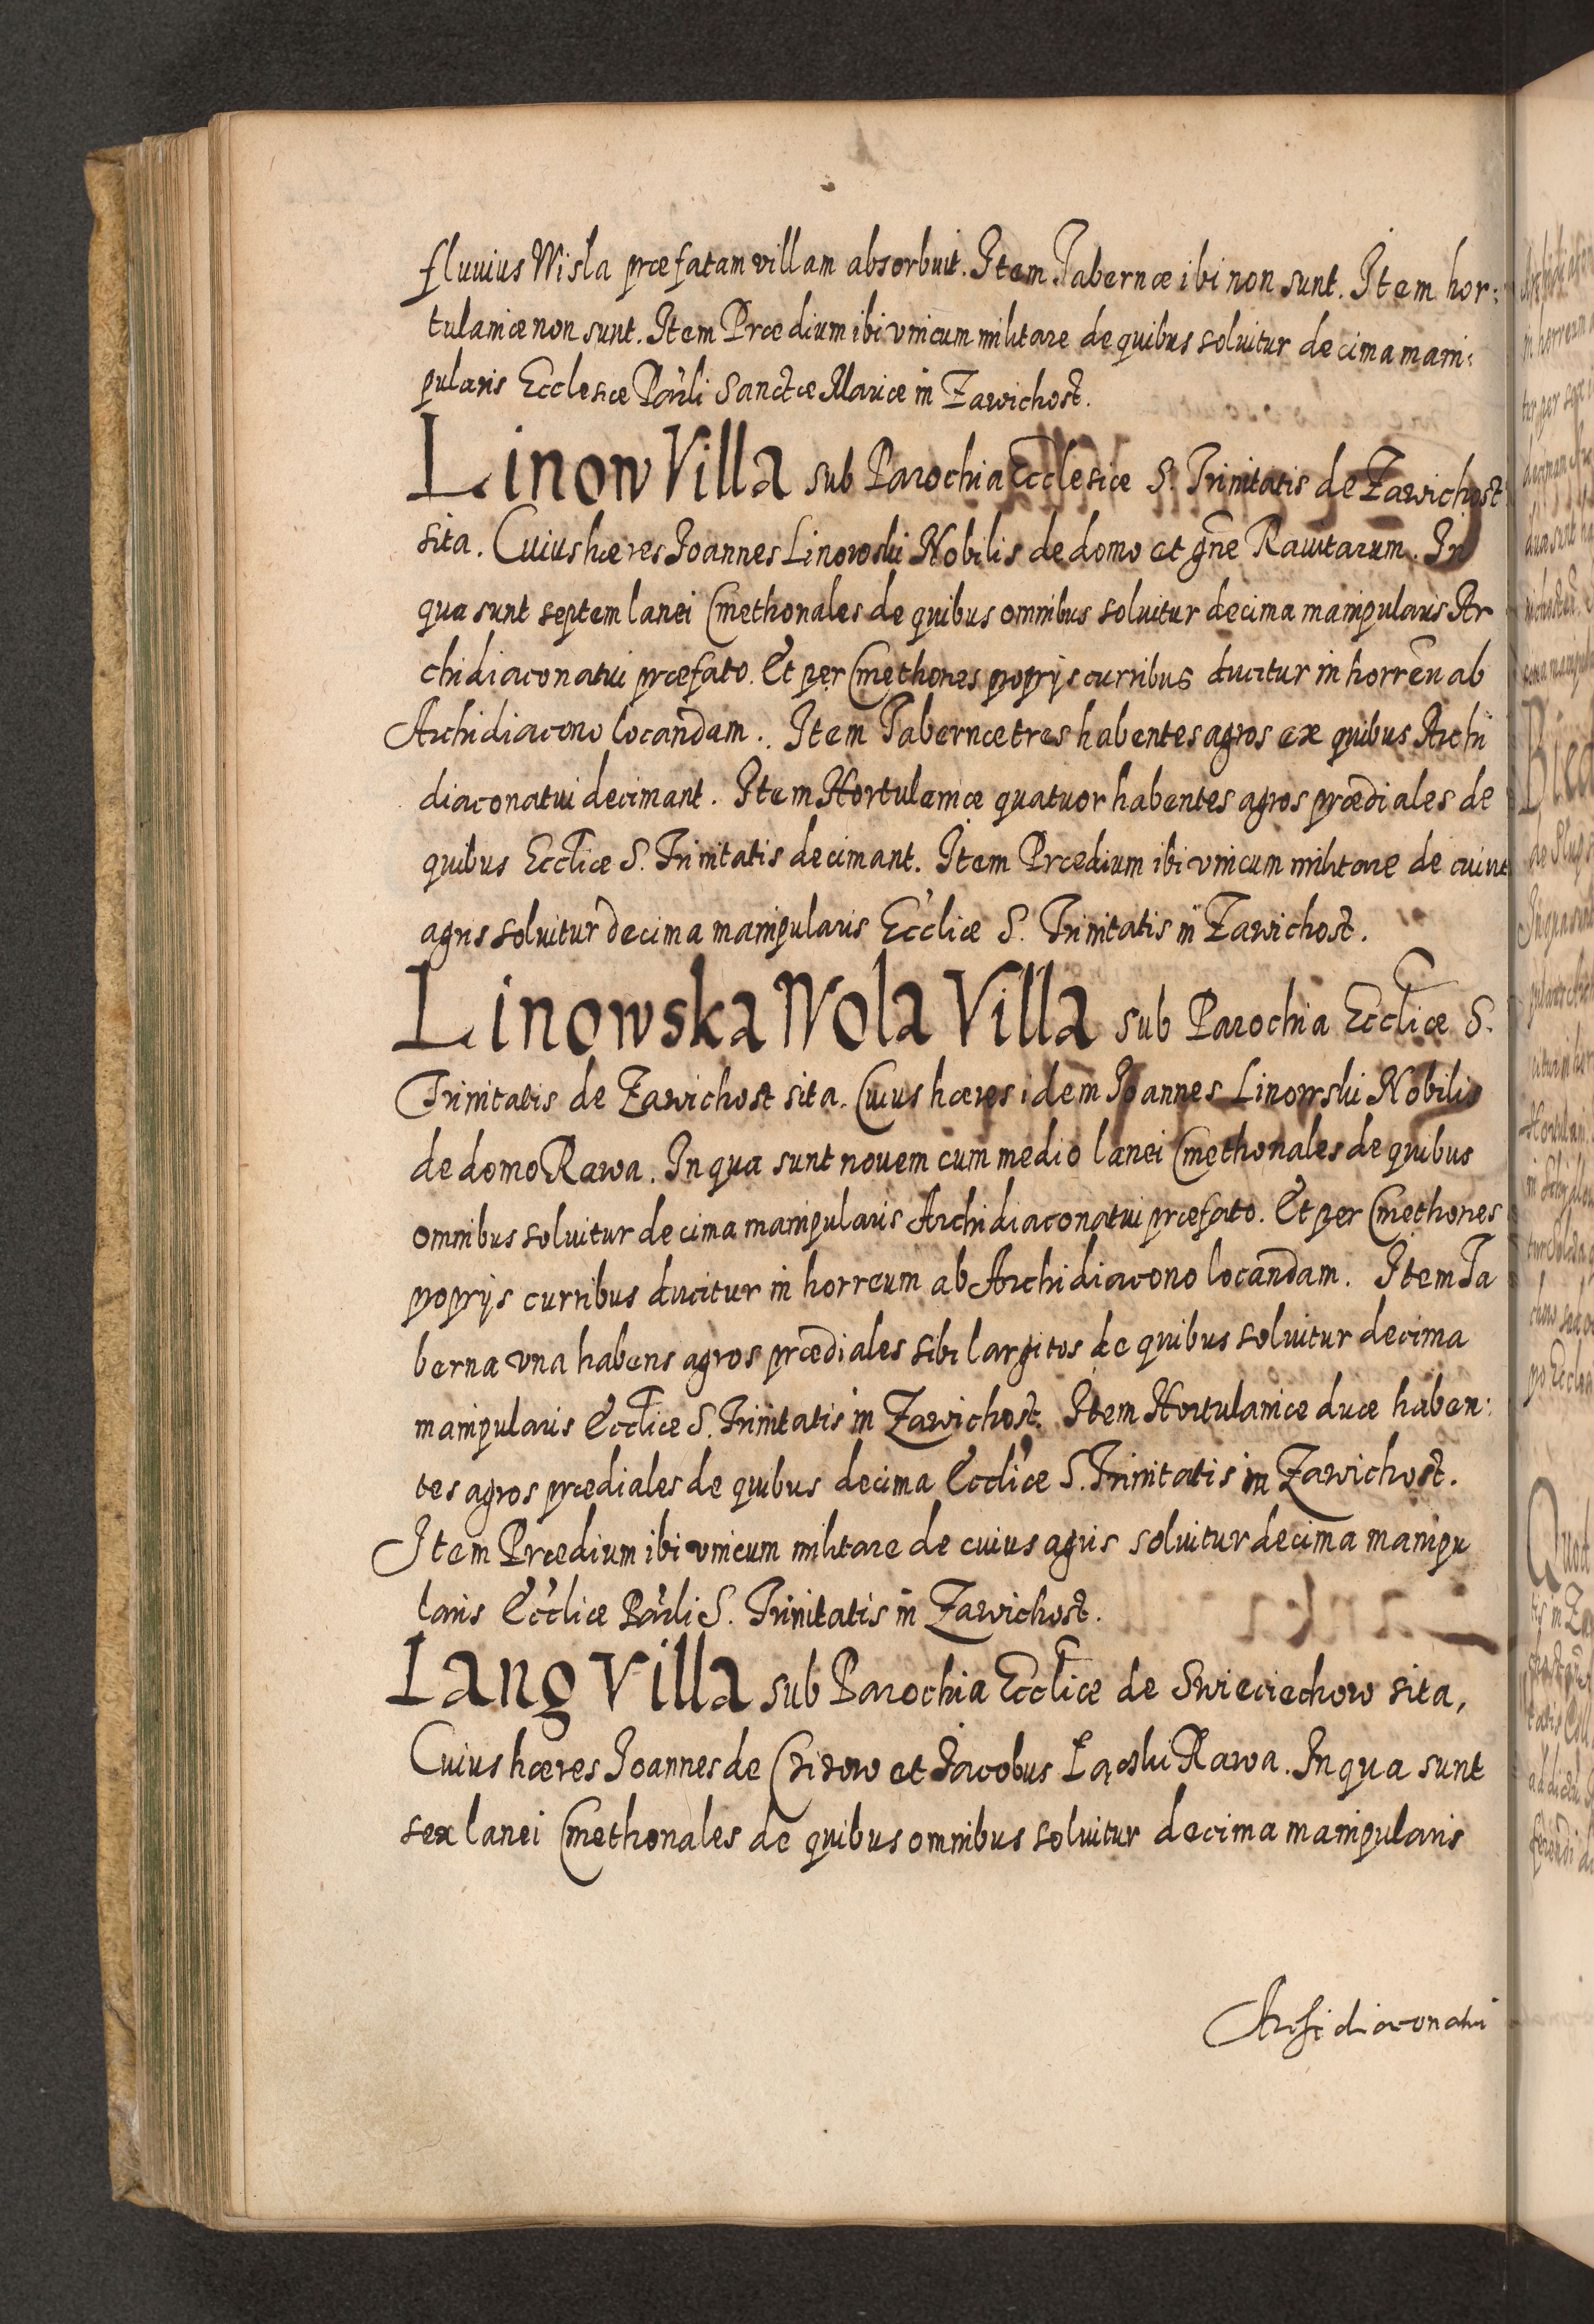 fluuius Wisla præfatam villam absorbuit. Item Tabernæ ibi non sunt. Item hor:
tulaniæ non sunt. Item Prædium ibi vnicum militare de quibus soluitur decima mani:
pularis Ecclesiæ Pārli Sanctæ Mariæ in Zawichost.
Linow Villa sub Parochia Ecclesiæ S. Trinitatis de Zawichost
sita. Cuius hæres Joannes Linowski Nobilis de domo et gñe Rawitarum. In
qua sunt septem lanei Cmethonales de quibus omnibus soluitur decima manipularis Ar
chidiaconatui præfato. Et per Cmethones proprijs curribus ducitur in horreū ab
Archidiacono locandam. Item Tabernæ tres habentes agros ex quibus Archi
diaconatui decimant. Item Hortulaniæ quatuor habentes agros prædiales de
quibus Eccliæ S. Trinitatis decimant. Item Prædium ibi vnicum militare de cuius
agris soluitur decima manipularis Eccliæ S. Trinitatis in Zawichost.
Linowska Wola Villa sub Parochia Eccliæ S.
Trinitatis de Zawichost sita. Cuius hæres idem Joannes Linowski Nobilis
de domo Rawa. In qua sunt nouem cum medio lanei Cmethonales de quibus
omnibus soluitur decima manipularis Archidiaconatui præfato. Et per Cmethones
proprijs curribus ducitur in horreum ab Archidiacono locandam. Item Ta
berna vna habens agros prædiales sibi largitos de quibus soluitur decima
manipularis Eccliæ S. Trinitatis in Zawichost. Item Hortulaniæ duæ haben:
tes agros prædiales de quibus decima Eccliæ S. Trinitatis in Zawichost.
Item Prædium ibi vnicum militare de cuius agris soluitur decima manipu
laris Eccliæ Pārli S. Trinitatis in Zawichost.
Lang Villa sub Parochia Eccliæ de Swieciechow sita,
Cuius hæres Joannes de et Jacobus Rawa. In qua sunt
sex lanei Cmethonales de quibus omnibus soluitur decima manipularis
Archidiaconatui